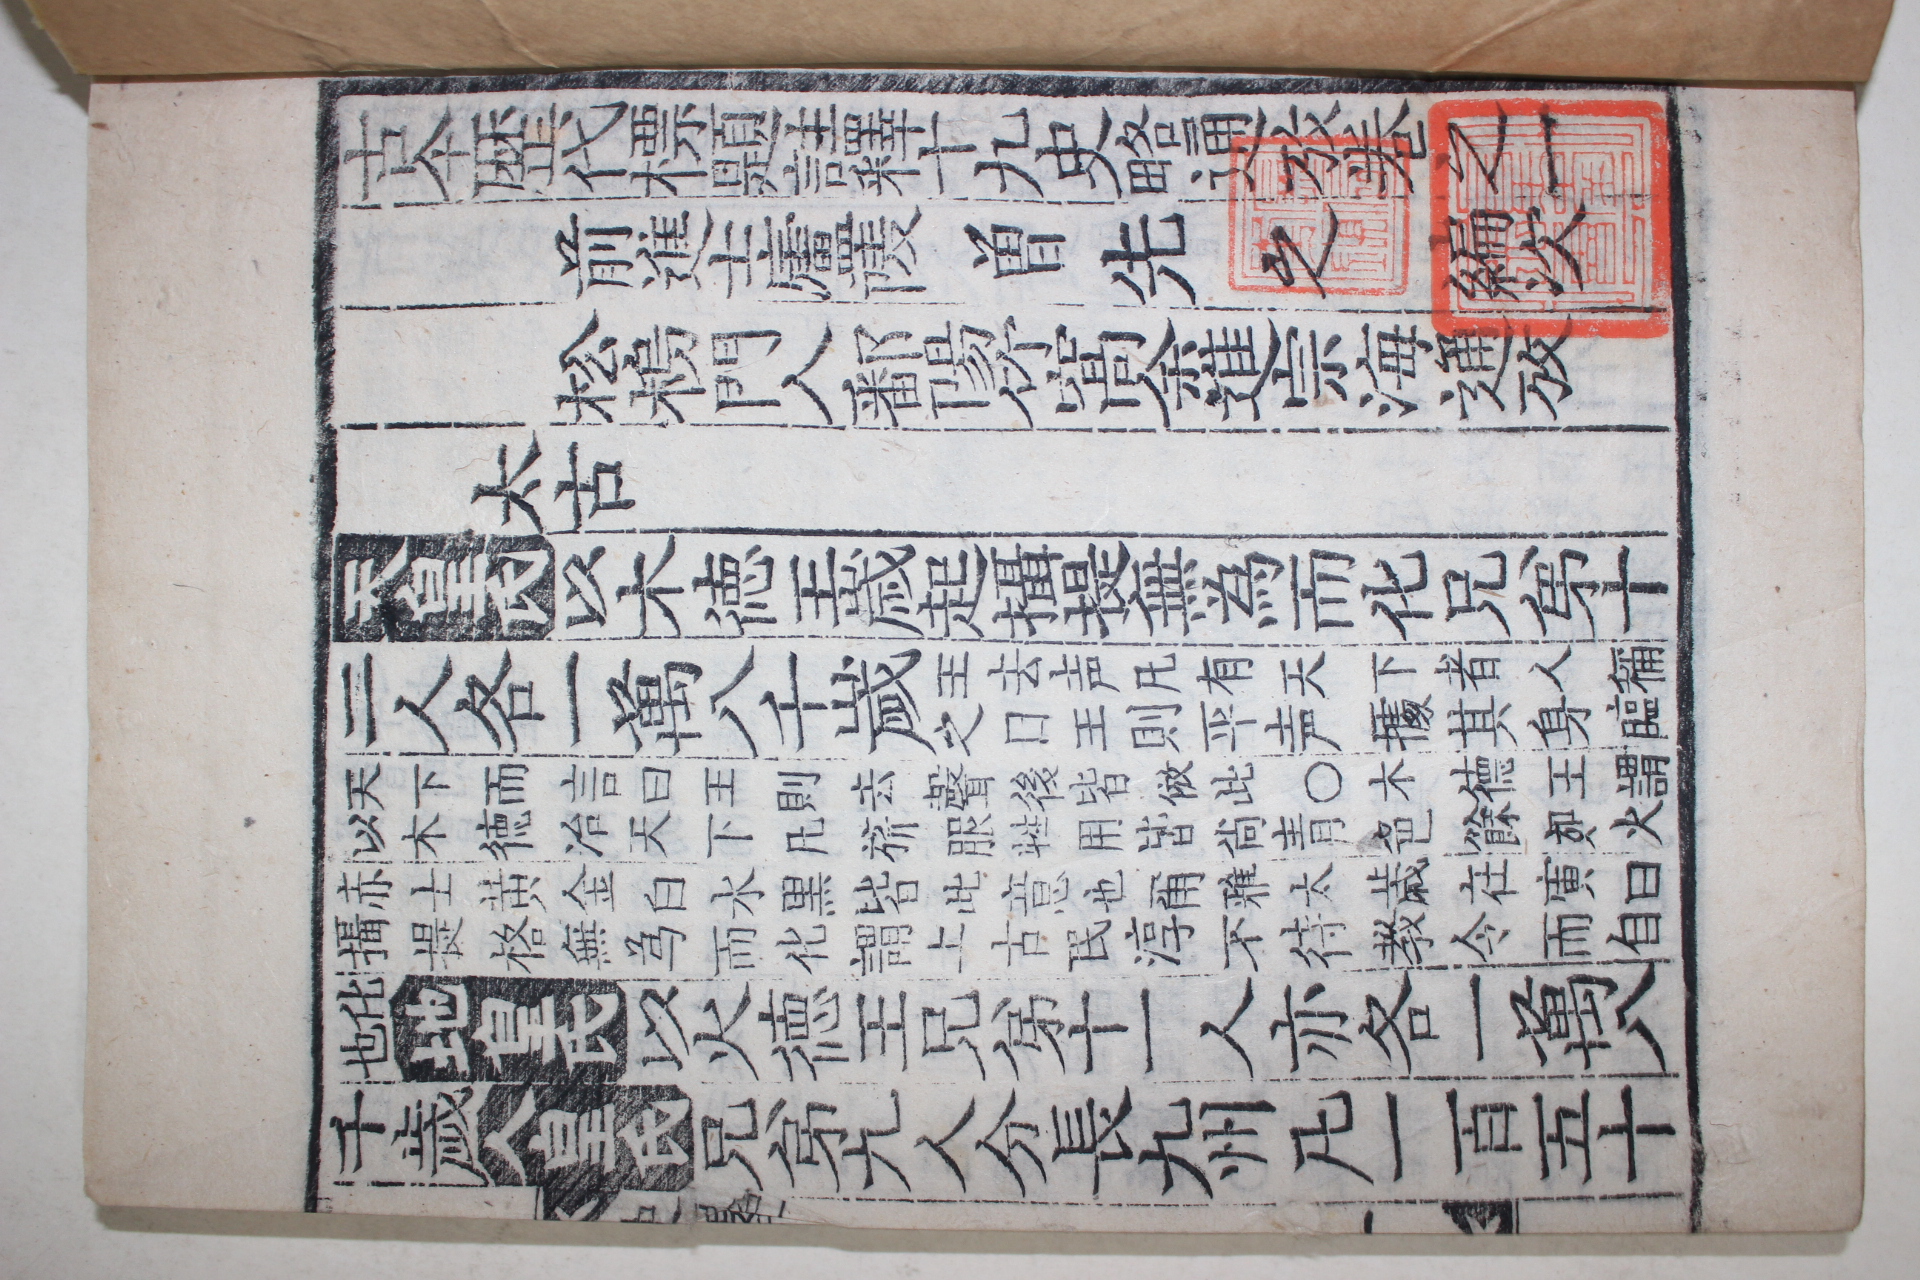 古今歷代標題註釋十九史略通攷卷之一
前進士廬陵 曾 先 之 編次
松塢門人鄱陽竹窩余進宗海通攷
太古
天皇氏以木徳王歲起攝提無為而化兄弟十
二人各一萬八千歲
王去声凡有天下者人稱
之曰王則平声據其身臨
天下而言曰王則去聲後皆倣此○木德王謂
以木德治天下凡旂服牲用皆尚青色餘如火
赤士黃金白水黒皆此意也爾雅太歲在寅曰
攝提格無為而化謂上古民淳不待教令而自
化
也
地皇氏以火德王兄弟十一人亦各一萬八
千歲人皇氏兄弟九人分長九州凡一百五十